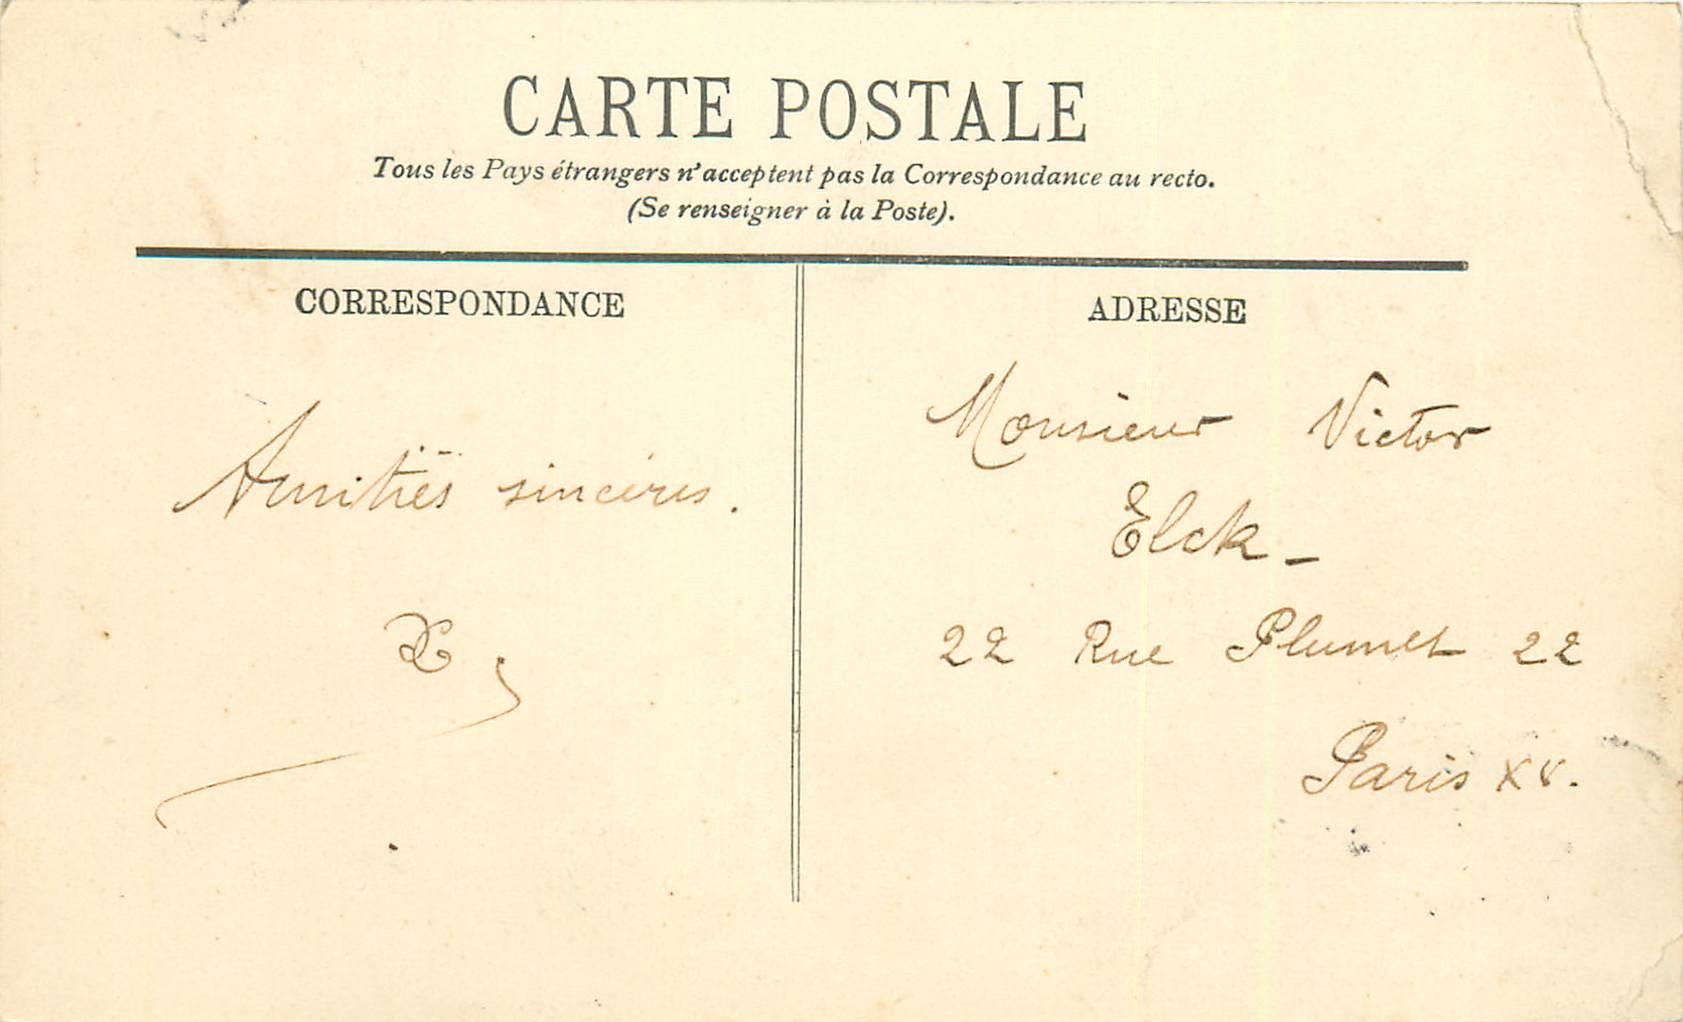 CARTE POSTALE
Tous les Pays étrangers n'acceptent pas la Correspondance au recto.
(Se renseigner à la Poste).
CORRESPONDANCE
Amitiés sincères.
ADRESSE
Monsieur Victor
Elck -
22 Rue Plumet 22
Paris XV.